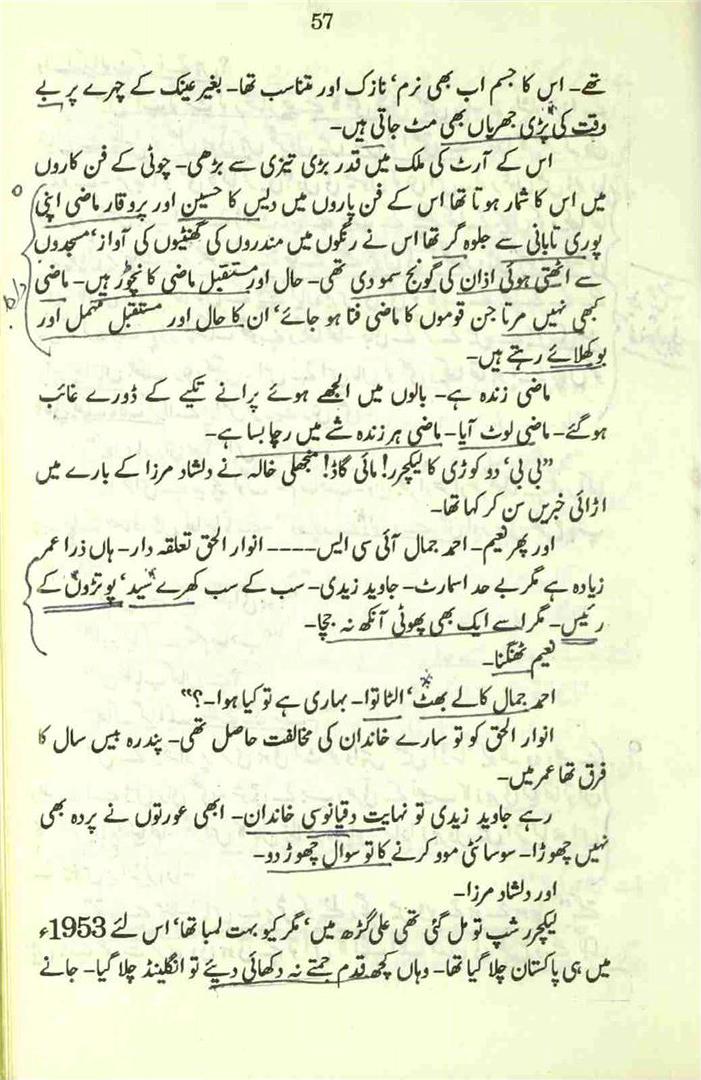 57
تھے۔ اس کا جسم اب بھی نرم‘ نازک اور متناسب تھا۔ بغیر عینک کے چہرے پر بے
وقت کی پڑی جھریاں بھی مٹ جاتی ہیں۔
اس کے آرٹ کی ملک میں قدر بڑی تیزی سے بڑھی۔ چوٹی کے فن کاروں
میں اس کا شمار ہوتا تھا اس کے فن پاروں میں دیس کا حسین اور پروقار ماضی اپنی
پوری تابانی سے جلوہ گر تھا اس نے رنگوں میں مندروں کی گھنٹیوں کی آواز‘ مسجدوں
سے اٹھتی ہوئی اذان کی گونج سمو دی تھی۔ حال اور مستقبل ماضی کا نچوڑ ہیں۔ ماضی
کبھی نہیں مرتا جن قوموں کا ماضی فنا ہو جائے‘ ان کا حال اور مستقبل مہمل اور
بوکھلائے رہتے ہیں۔
ماضی زندہ ہے۔ بالوں میں الجھے ہوئے پرانے تکیے کے ڈورے غائب
ہو گئے۔ ماضی لوٹ آیا۔ ماضی ہر زندہ شے میں رچا بسا ہے۔
”بی بی‘ دو کوڑی کا لیکچرر! مائی گاڈ! منجھلی خالہ نے دلشاد مرزا کے بارے میں
اڑائی خبریں سن کر کہا تھا۔
اور پھر نعیم۔ احمد جمال آئی سی ایس۔۔۔۔ انوار الحق تعلقہ دار۔ ہاں ذرا عمر
زیادہ ہے مگر بے حد اسمارٹ۔ جاوید زیدی۔ سب کے سب کھرے سید‘ پوتڑوں کے
رئیس۔ مگر اسے ایک بھی پھوٹی آنکھ نہ جچا۔
نعیم ٹھنگنا۔
احمد جمال کالے بھٹ‘ الٹا توا۔ بہاری ہے تو کیا ہوا۔؟“
انوار الحق کو تو سارے خاندان کی مخالفت حاصل تھی۔ پندرہ بیس سال کا
فرق تھا عمر میں۔
رہے جاوید زیدی تو نہایت دقیانوسی خاندان۔ ابھی عورتوں نے پردہ بھی
نہیں چھوڑا۔ سوسائٹی موو کرنے کا تو سوال چھوڑ دو۔
اور دلشاد مرزا۔
لیکچرر شپ تو مل گئی تھی علی گڑھ میں‘ مگر کیو بہت لمبا تھا‘ اس لئے 1953ء
میں ہی پاکستان چلا گیا تھا۔ وہاں کچھ قدم جمتے نہ دکھائی دیئے تو انگلینڈ چلا گیا۔ جانے